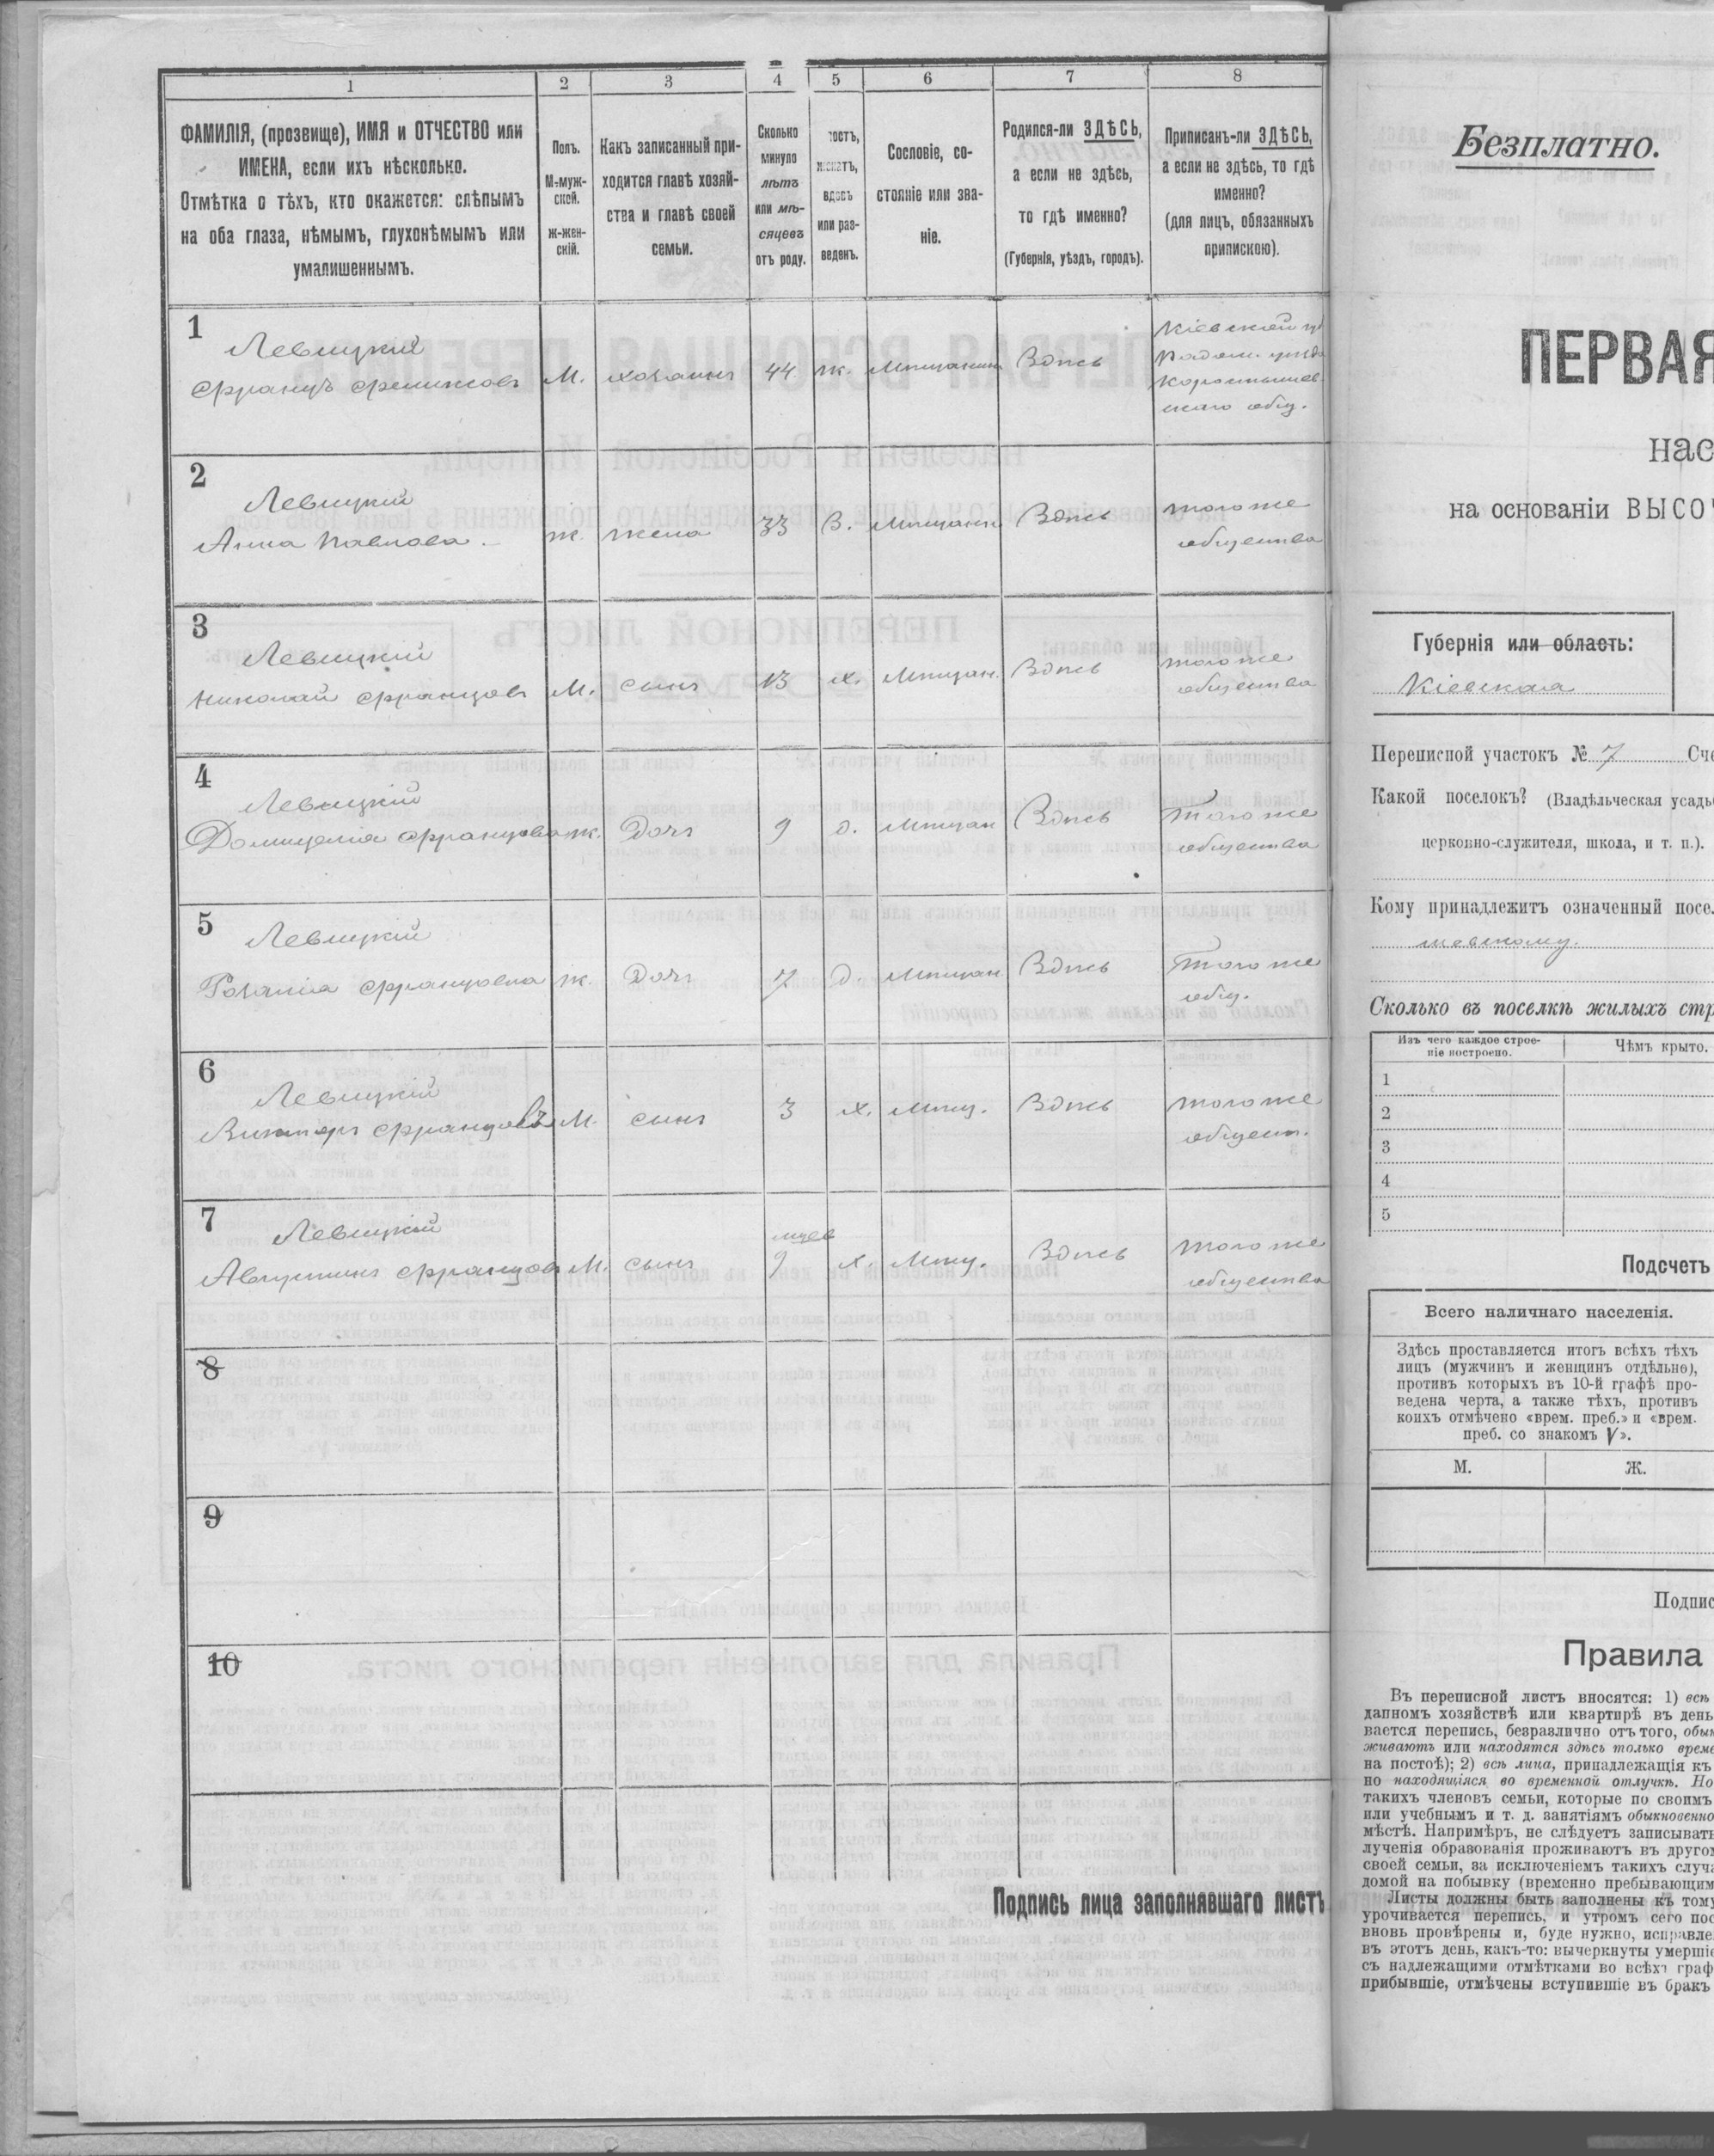 1 2 3 4 5 6 7 8
ФАМИЛІЯ, (прозвище), ИМЯ и ОТЧЕСТВО или
ИМЕНА, если ихъ нѣсколько.
Отмѣтка о тѣхъ, кто окажется: слѣпымъ
на оба глаза, нѣмымъ, глухонѣмымъ или
умалишеннымъ.
Полъ.
М-муж-
ской.
ж-жен-
скій.
Какъ записанный при-
ходится главѣ хозяй-
ства и главѣ своей
семьи.
Сколько
минуло
лѣтъ
или мѣ-
сяцевъ
отъ роду.
вдовъ
или раз-
веденъ.
Сословіе, со-
стояніе или зва-
ніе.
Родился-ли ЗДѢСЬ,
а если не здѣсь,
то гдѣ именно?
(Губернія, уѣздъ, городъ).
Приписанъ-ли ЗДѢСЬ,
а если не здѣсь, то гдѣ
именно?
(для лицъ, обязанныхъ
припискою).
1
Левицкій
Францъ Феликсовъ М. хозяинъ 44 ж. Мѣщанинъ Здѣсь
Кіевской губ
Радом. уѣзда
Коростышев-
скаго общ.
2
Левицкій
Анна Павлова. ж. жена 33 З. Мѣщанка Здѣсь
того же
общества
3
Левицкій
Николай Францовъ М. сынъ 13 х. Мѣщан. Здѣсь
того же
общества
4
Левицкій
Домицелія Францова ж. Дочь 9 д. Мѣщан Здѣсь
Того же
общества
5
Левицкій
Розалія Францовна ж. Дочь 7 д. Мѣщан Здѣсь
Того же
общ.
6
Левицкій
Викторъ Францовъ М. сынъ 3 х. Мѣщ. Здѣсь
того же
общест.
7
Левицкій
Августинъ Францовъ М. сынъ 9 мцев х. Мѣщ. Здѣсь
того же
общества
8
9
10
Подпись лица заполнявшаго листъ
Безплатно.
ПЕРВАЯ
нас
на основаніи ВЫСОЧ
Губернія или область:
Кіевская
Переписной участокъ № 7 Сче
Какой поселокъ? (Владѣльческая усадь
церковно-служителя, школа, и т. п.).
Кому принадлежитъ означенный посел
шевскому.
Сколько въ поселкѣ жилыхъ стр
Изъ чего каждое строе-
ніе построено.
Чѣмъ крыто.
1
2
3
4
5
Подсчетъ
Всего наличнаго населенія.
Здѣсь проставляется итогъ всѣхъ тѣхъ
лицъ (мужчинъ и женщинъ отдѣльно),
противъ которыхъ въ 10-й графѣ про-
ведена черта, а также тѣхъ, противъ
коихъ отмѣчено «врем. преб.» и «врем.
преб. со знакомъ V».
М. Ж.
Подпис
Правила
Въ переписной листъ вносятся: 1) всѣ
данномъ хозяйствѣ или квартирѣ въ день
вается перепись, безразлично отъ того, обык
живаютъ или находятся здѣсь только време
на постоѣ); 2) всѣ лица, принадлежащія къ
но находящіяся во временной отлучкѣ. Но
такихъ членовъ семьи, которые по своимъ
или учебнымъ и т. д. занятіямъ обыкновенно
мѣстѣ. Напримѣръ, не слѣдуетъ записывать
лученія образованія проживаютъ въ другом
своей семьи, за исключеніемъ такихъ случа
домой на побывку (временно пребывающим
Листы должны быть заполнены къ тому
урочивается перепись, и утромъ сего пос
вновь провѣрены и, буде нужно, исправле
въ этотъ день, какъ-то: вычеркнуты умершіе
съ надлежащими отмѣтками во всѣхъ граф
прибывшіе, отмѣчены вступившіе въ бракъ